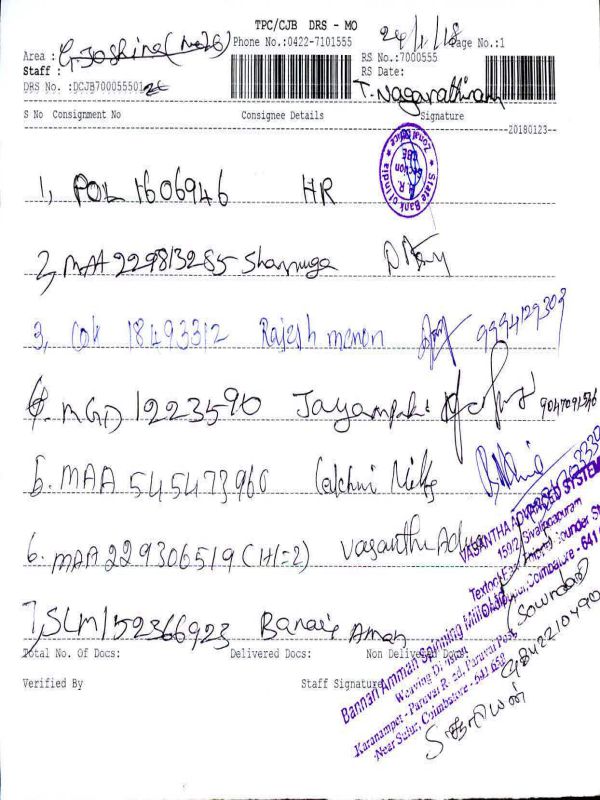 TPC/CJB DRS - MO
24/1/18
Area : G. Joshina
Phone No.:0422-7101555
Page No.:1
Staff :
RS No.:7000555
RS Date:
DRS No. :DCJB70005550126
T. Nagarathinam
S No Consignment No Consignee Details Signature
20180123
State Bank of India
Zonal Office
1, POL 1606946 HR
2, MAA 229813285 Shanmuga
3, Cok 18493312 Rajesh menon 9994129303
4. MGD 1223590 9047091546
5. MAA 545473960 Lakshmi Mills
6. MAA 229306519 (H1=2) Vasantha Adva
7, SLM 152366923 Banari Aman
VASANTHA ADVANCED SYSTEM
150/2, Sivalingapuram
Coimbatore - 641
(Soundar)
9842210490
Total No. Of Docs: Delivered Docs: Non Delivered Docs:
Verified By Staff Signature
Bannari Amman Spinning Mill
Weaving Division
Karanampet - Paruvai Road, Paruvai Post,
Near Sulur, Coimbatore - 641 658